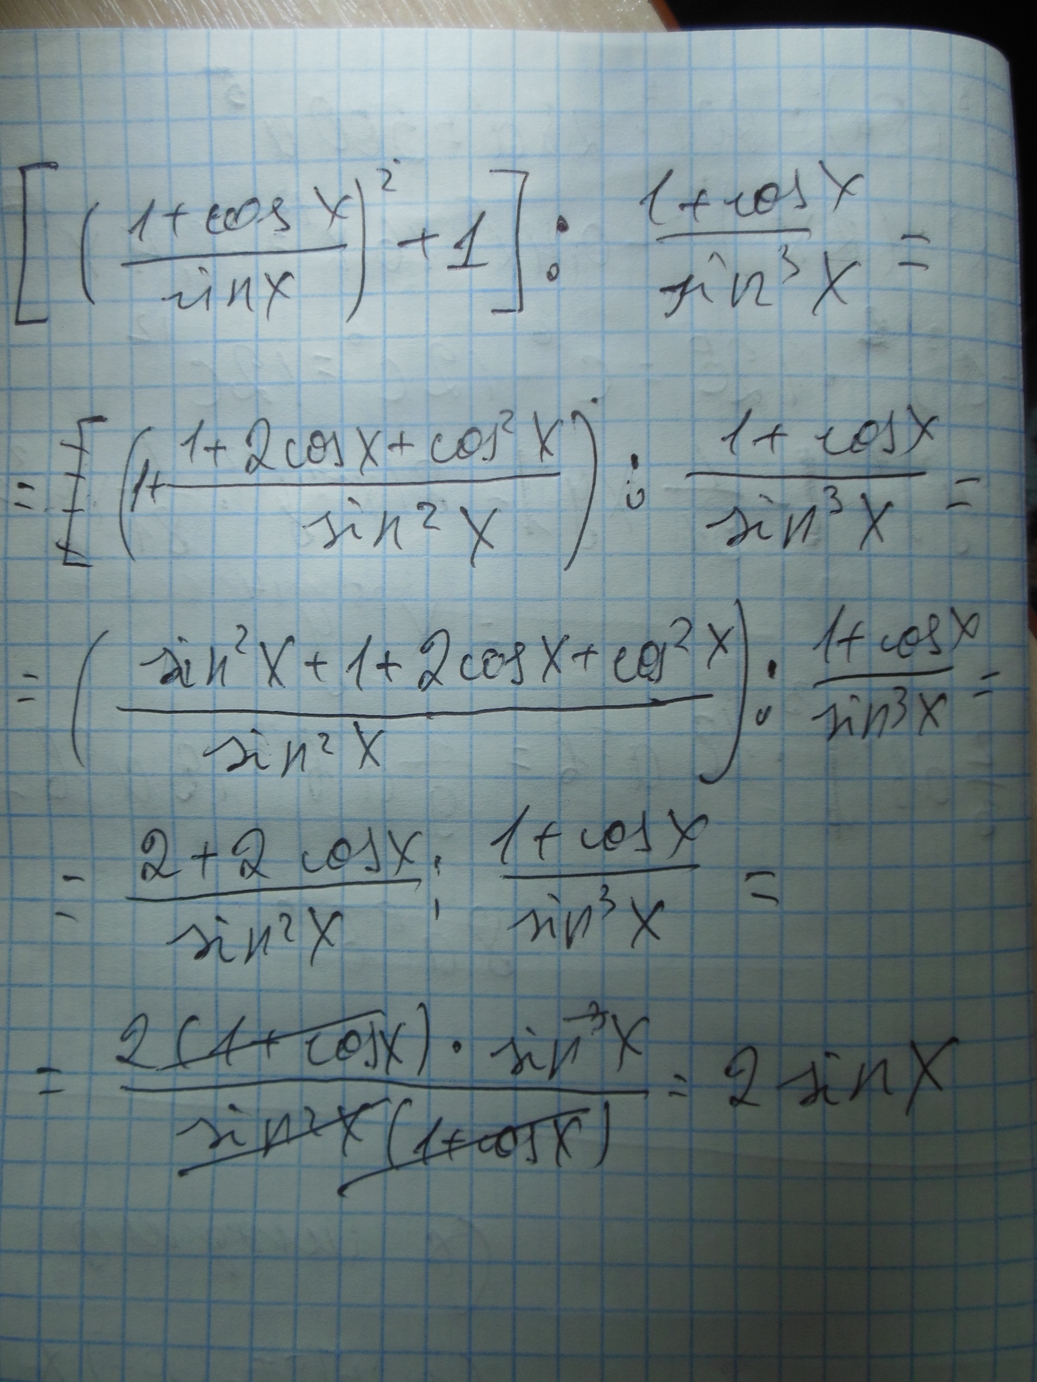 [((1+cos x)/(sin x))² + 1] : (1+cos x)/(sin³ x) =
= (1+ (1+2cos x+cos² x)/(sin² x)) : (1+cos x)/(sin³ x) =
= ((sin² x+1+2cos x+cos² x)/(sin² x)) : (1+cos x)/(sin³ x) =
= (2+2 cos x)/(sin² x) : (1+cos x)/(sin³ x) =
= (2(1+cos x) · sin³ x)/(sin² x (1+cos x)) = 2 sin x